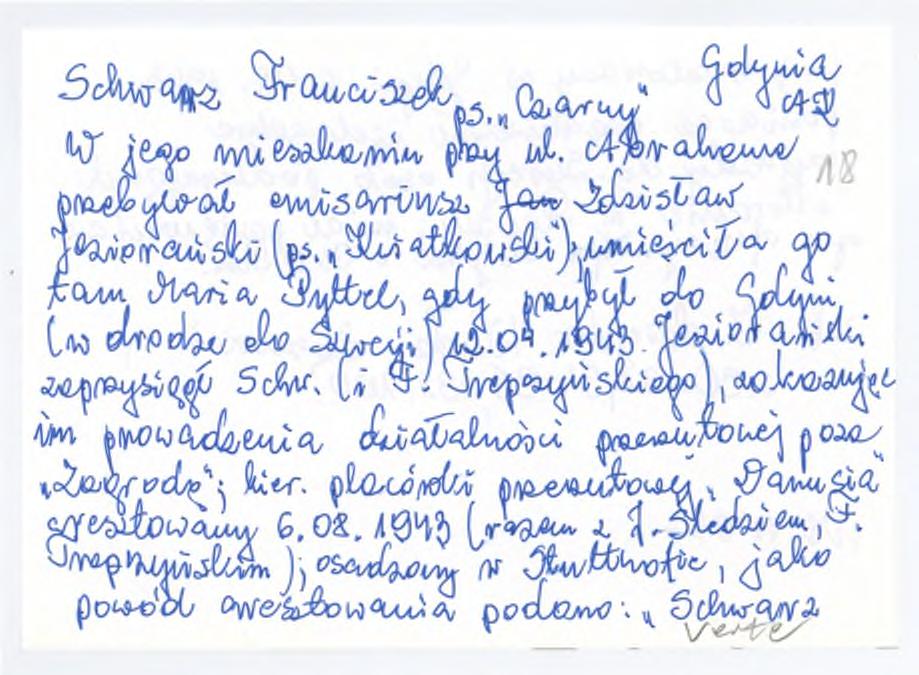 Schwarz Franciszek ps. „Czarny" Gdynia
AK
W jego mieszkaniu przy ul. Abrahama
18
przebywał emisariusz Jan Zdzisław
Jeziorański (ps. „Kwiatkowski"); umieściła go
tam Maria Pyttel, gdy przybył do Gdyni
(w drodze do Szwecji) 12.04.1943. Jeziorański
zaprzysiągł Schw. (i F. Trepczyńskiego), zakazując
im prowadzenia działalności przerzutowej poza
„Zagrodą"; kier. placówki przerzutowej „Danusia"
aresztowany 6.08.1943 (razem z J. Śledziem, F.
Trepczyńskim); osadzony w Stutthofie, jako
powód aresztowania podano: „Schwarz
verte